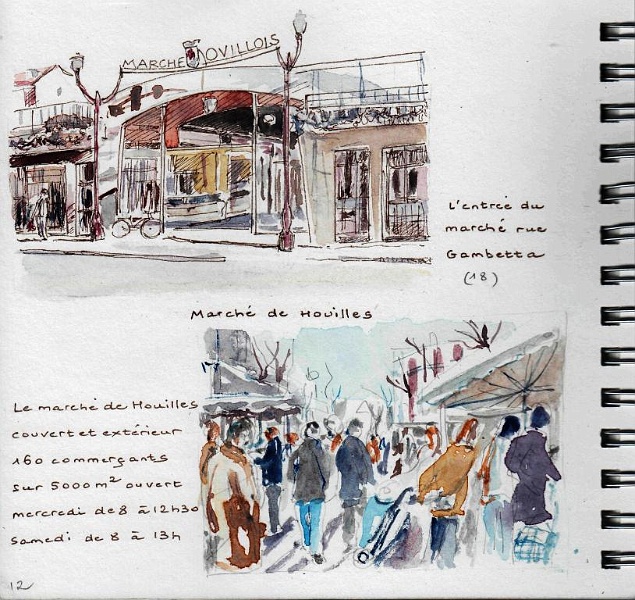 MARCHE OVILLOIS
L'entrée du
marché rue
Gambetta
(18)
Marché de Houilles
Le marché de Houilles
couvert et extérieur
160 commerçants
sur 5000m² ouvert
mercredi de 8 à 12h30
samedi de 8 à 13h
12